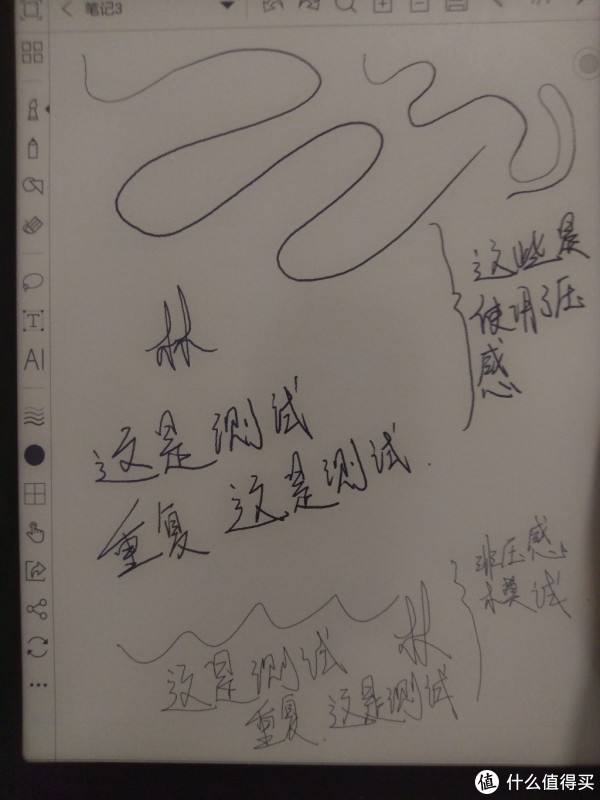 笔记3
林
这是测试
重复 这是测试.
这些是
使用了压
感
AI
非压感
模试
林
这是测试
重复.这是测试
值 什么值得买